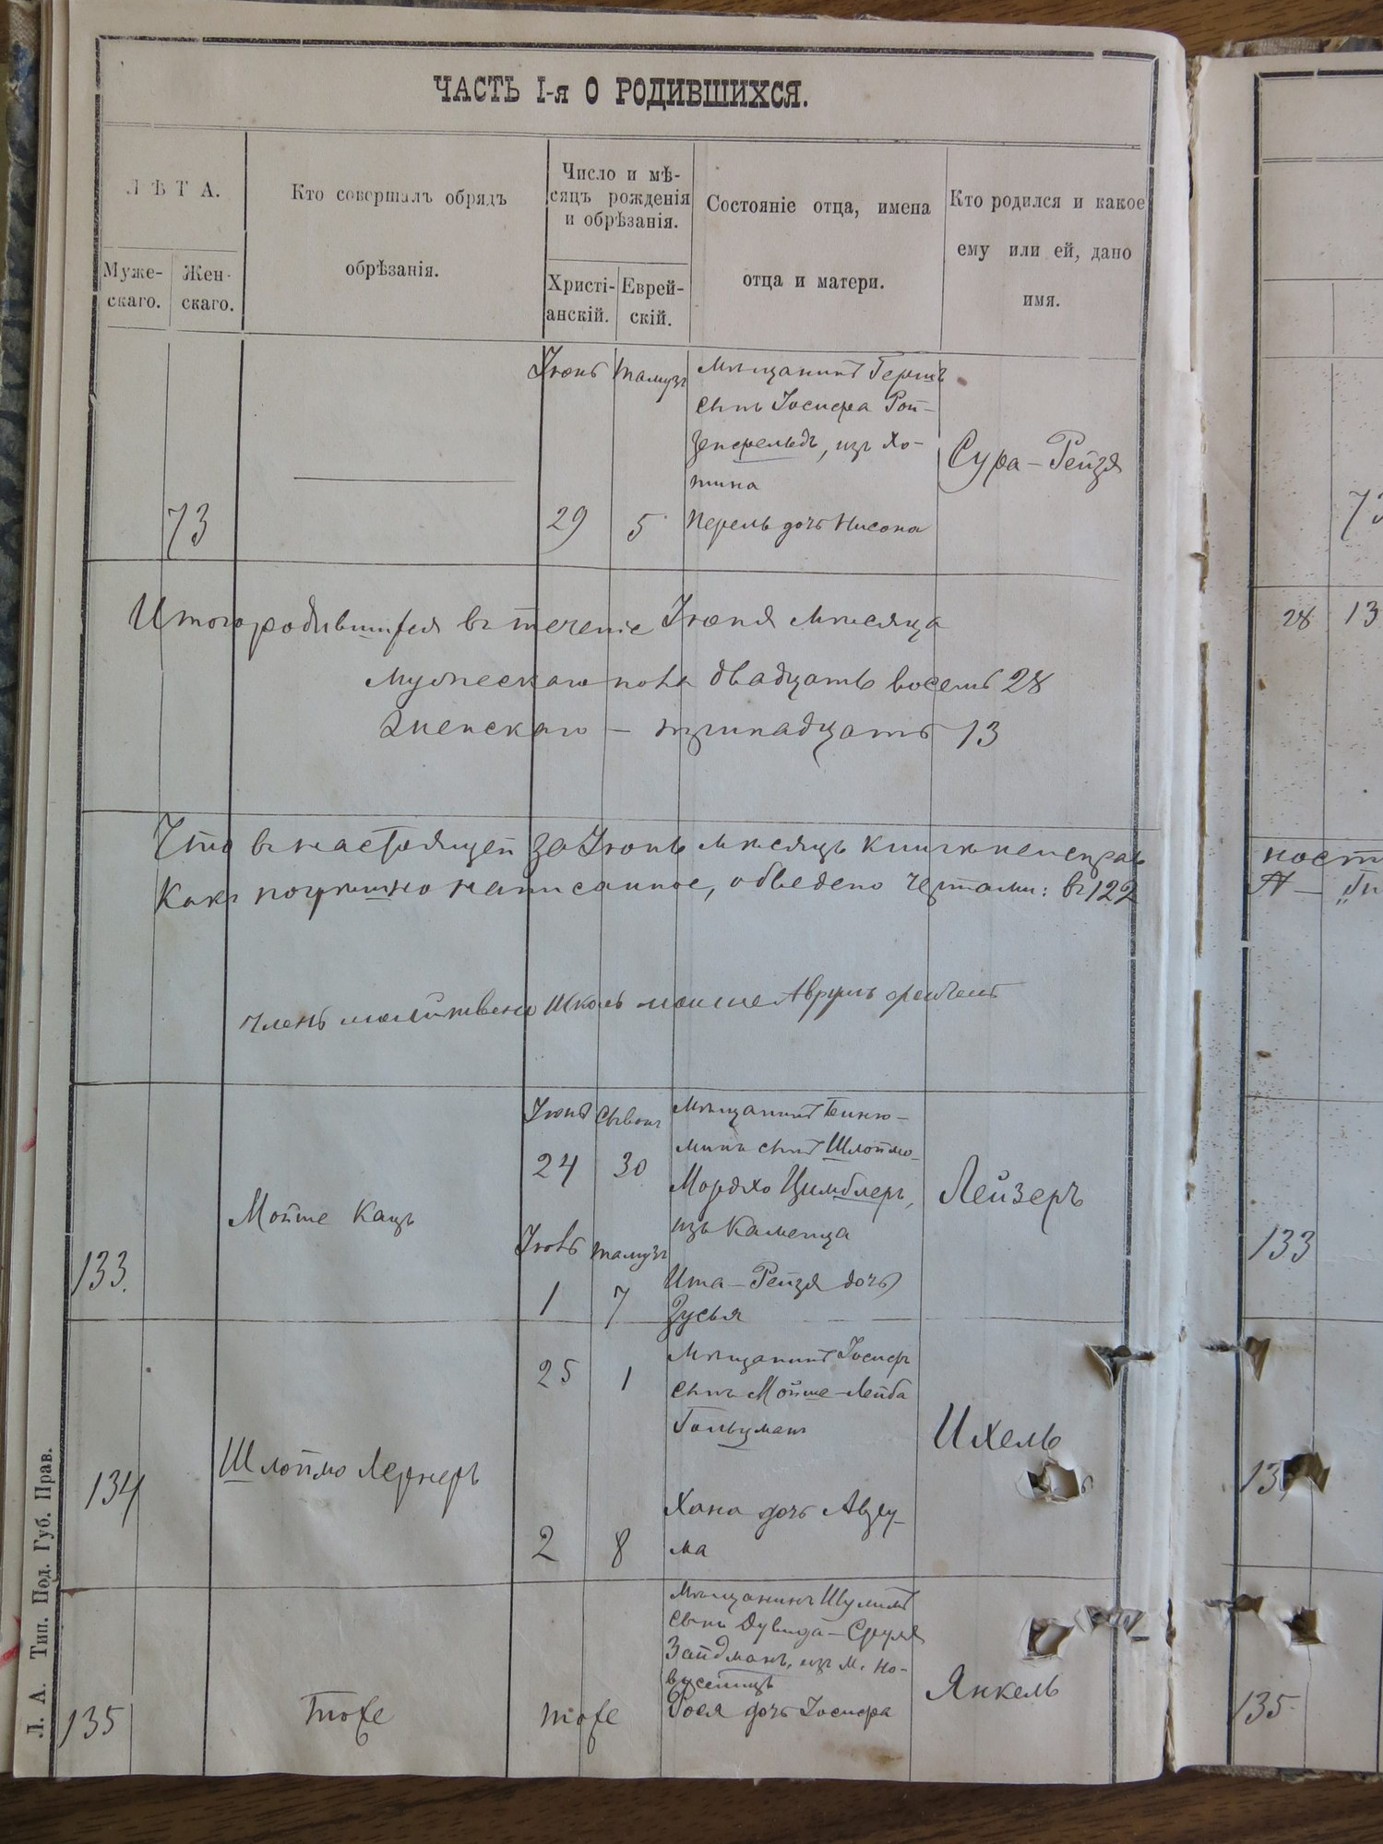 ЧАСТЬ I-я О РОДИВШИХСЯ.
ЛѢТА.
Муже-
скаго.
Жен-
скаго.
Кто совершалъ обрядъ
обрѣзанія.
Число и мѣ-
сяцъ рожденія
и обрѣзанія.
Христі-
анскій.
Еврей-
скій.
Состояніе отца, имена
отца и матери.
Кто родился и какое
ему или ей, дано
имя.
73
Іюнь
29
тамузъ
5
Мѣщанинъ Гершъ
сынъ Іосифа Рой-
зенфельдъ, изъ Хо-
тина
Перель дочь Нисона
Сура-Рейзя
Итого родившихся въ теченіе Іюня мѣсяца
мужескаго пола двадцать восемь 28
женскаго - тринадцать 13
28 13
Что въ настоящей за Іюнь мѣсяцъ книгѣ неисправ
какъ погрѣшно написанное, обведено чертами: въ 122
Членъ Школы Авруль
133.
Мойше Кацъ
Іюнь Сывонъ
24 30
Іюль тамузъ
1 7
Мѣщанинъ Биню-
минъ сынъ Шлоймо-
Мордхо Цимблеръ,
изъ Каменца
Ита-Рейзя дочь
Зусья
Лейзеръ
133
134
Шлоймо Лернеръ
25 1
2 8
Мѣщанинъ Іосифъ
сынъ Мойше-Лейба
Гольцманъ
Хана дочь Авру-
ма
Ихель
135
тоже
тоже
Мѣщанинъ Шулимъ
сынъ Дувида-Сруля
Зайдманъ, изъ м. Но-
воселицъ
Рося дочь Іосифа
Янкель
135
Л. А. Тип. Под. Губ. Прав.